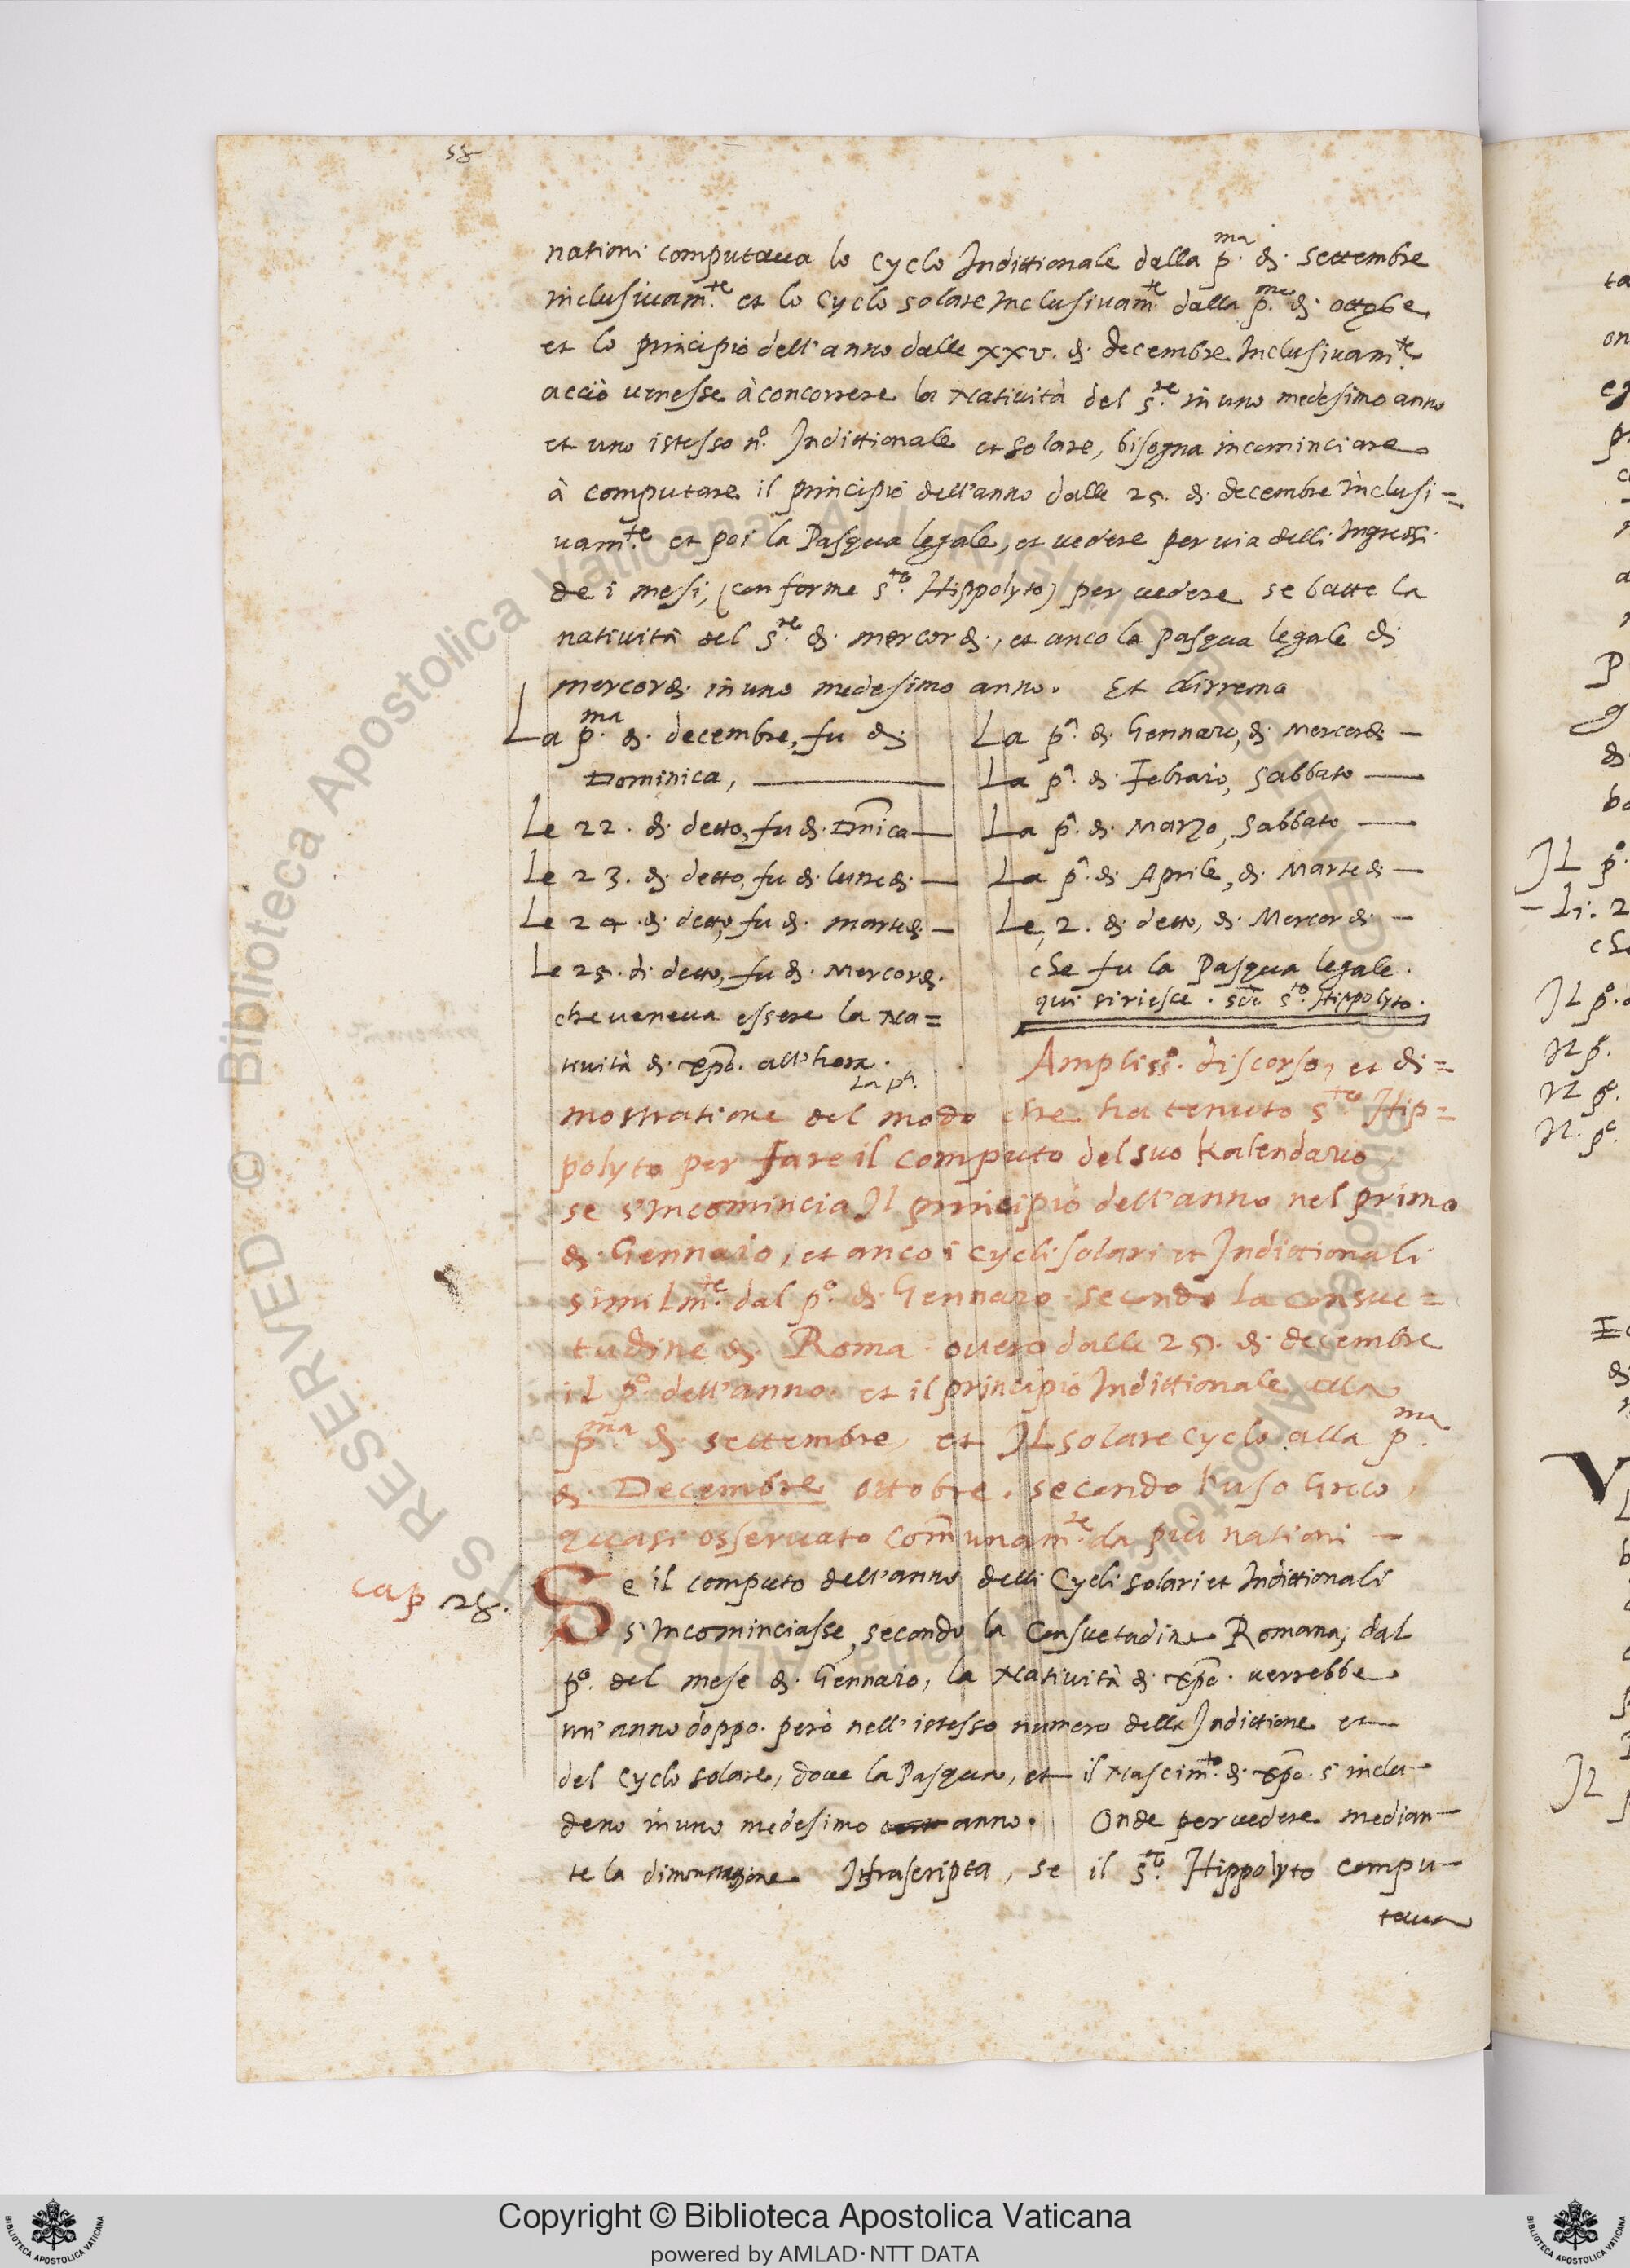 58
nationi computaua lo Cyclo Indittionale dalla p.ma di settembre
inclusiuam.te et lo Cyclo solare Inclusiuam.te dalla p.ma di ottobe
et lo principio dell'anno dalle xxv. di decembre Inclusiuam.te
acciò uenesse à concorrere la Natiuità del S.re in uno medesimo anno
et uno istesso n.o Indittionale et solare, bisogna incominciare
à computare il principio dell'anno dalle 25. di decembre inclusi=
uam.te et poi la Pasqua legale, et uedere per uia delli Ingressi
de i mesi, (conforme s.to Hippolyto) per uedere se batte la
natiuità del S.re di mercordi, et anco la pasqua legale di
mercordi in uno medesimo anno. Et dirrema
La p.ma di decembre, fu di
Dominica,
Le 22. di detto, fu di Dnica
Le 23. di detto, fu di lunedi
Le 24 di detto, fu di martedi
Le 25. di detto, fu di Mercordi
che ueneua essere la Na=
tiuità di xpo. all'hora.
La p.a di Gennaro, di Mercordi
La p.a di Febraio, Sabbato
La p.a di Marzo, Sabbato
La p.a di Aprile, di Martedi
Le, 2. di detto, di Mercordi
che fu la Pasqua legale.
qui si riesce. s.to Hippolyto.
Ampliss.o discorso, et di=
mostratione del modo che ha tenuto s.to Hip=
polyto per fare il computo del suo Kalendario
se s'Incomincia Il principio dell'anno nel primo
di Gennaio, et anco i cycli solari et Indittionali
similm.te dal p.o di Gennaro secondo la consue=
tudine di Roma. ouero dalle 25. di decembre
il p.o dell'anno. et il principio Indittionale alla
p.ma di settembre, et Il solare Cyclo alla p.ma
di Decembre ottobre. secondo l'uso Greco
quasi osseruato com̄unam.te da più nationi
cap 28.
Se il computo dell'anno delli Cycli solari et Indittionali
s'Incominciasse, secondo la Consuetudine Romana, dal
p.o del mese di Gennaio, la Natiuità di xpo. uerrebbe
un'anno doppo. però nell'istesso numero della Indittione et
del Cyclo solare, doue la Pasqua, et il Nascim.to di xpo. s'inclu-
deno in uno medesimo anno. Onde per uedere median-
te la dimonstratione Infrascripta, se il s.to Hippolyto compu-
taua
Copyright © Biblioteca Apostolica Vaticana
powered by AMLAD·NTT DATA